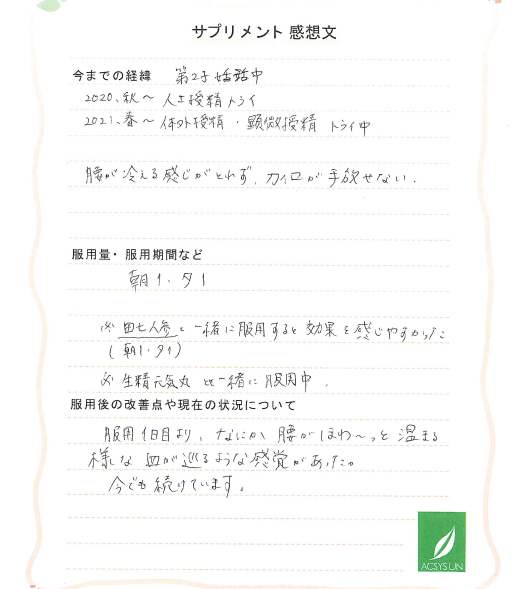 サプリメント 感想文
今までの経緯 第2子妊活中
2020、秋〜 人工授精トライ
2021、春〜 体外授精・顕微授精 トライ中
腰が冷える感じがとれず、カイロが手放せない.
服用量・服用期間など
朝1・夕1
※ 田七人参と一緒に服用すると効果を感じやすかった
(朝1・夕1)
※ 生精元気丸と一緒に服用中.
服用後の改善点や現在の状況について
服用1日目より、なにか腰がほわ〜っと温まる
様な血が巡るような感覚があった。
今でも続けています。
ACSYSUN